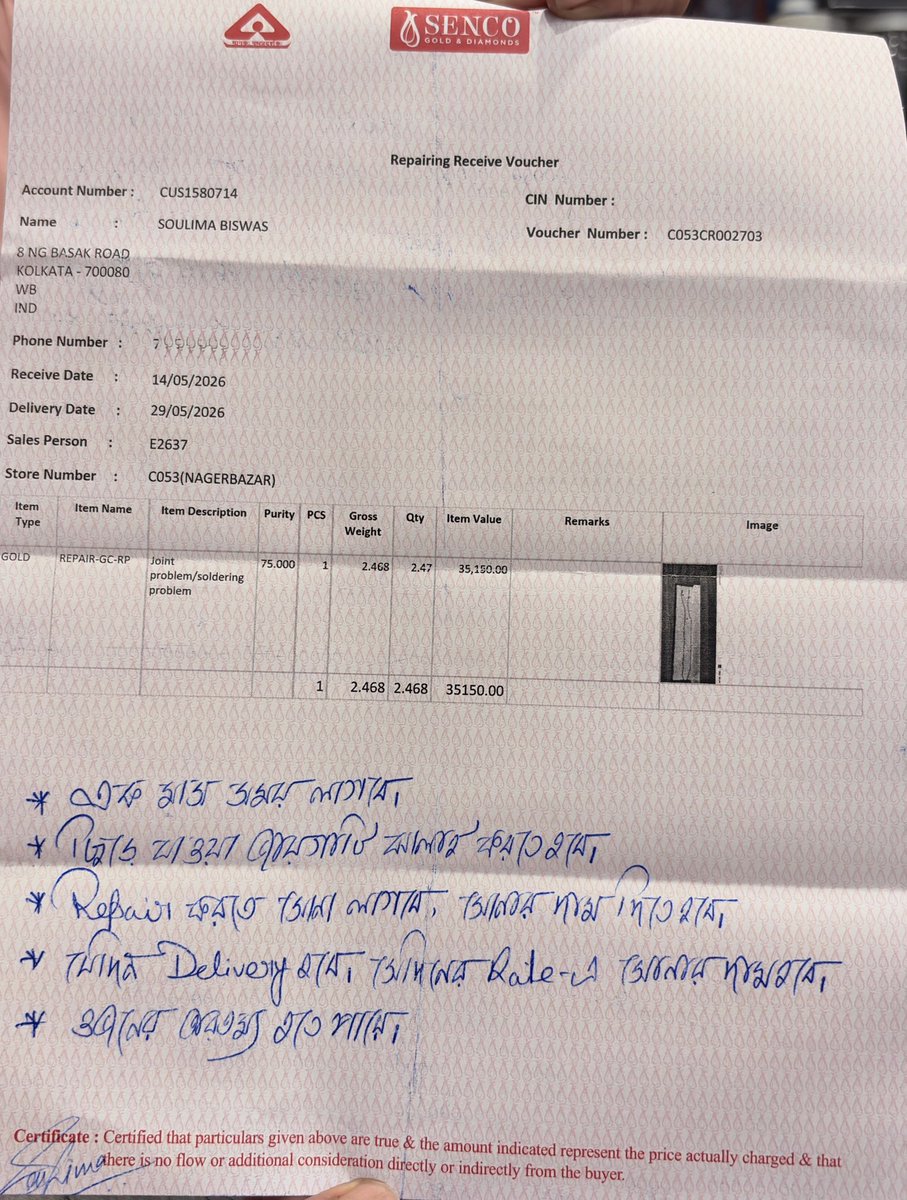 SENCO
GOLD & DIAMONDS
Repairing Receive Voucher
Account Number : CUS1580714
CIN Number :
Name : SOULIMA BISWAS
Voucher Number : C053CR002703
8 NG BASAK ROAD
KOLKATA - 700080
WB
IND
Phone Number :
Receive Date : 14/05/2026
Delivery Date : 29/05/2026
Sales Person : E2637
Store Number : C053(NAGERBAZAR)
Item Type Item Name Item Description Purity PCS Gross Weight Qty Item Value Remarks Image
GOLD REPAIR-GC-RP Joint problem/soldering problem 75.000 1 2.468 2.47 35,150.00
1 2.468 2.468 35150.00
* এক মাস সময় লাগবে।
* ছিঁড়ে যাওয়া জায়গাটি ঝালাই করতে হবে।
* Repair করতে সোনা লাগবে, সোনার দাম দিতে হবে।
* যেদিন Delivery হবে, সেদিনের Rate-এ সোনার দাম হবে।
* ওজনের তারতম্য হতে পারে।
Certificate : Certified that particulars given above are true & the amount indicated represent the price actually charged & that
there is no flow or additional consideration directly or indirectly from the buyer.
Soulima